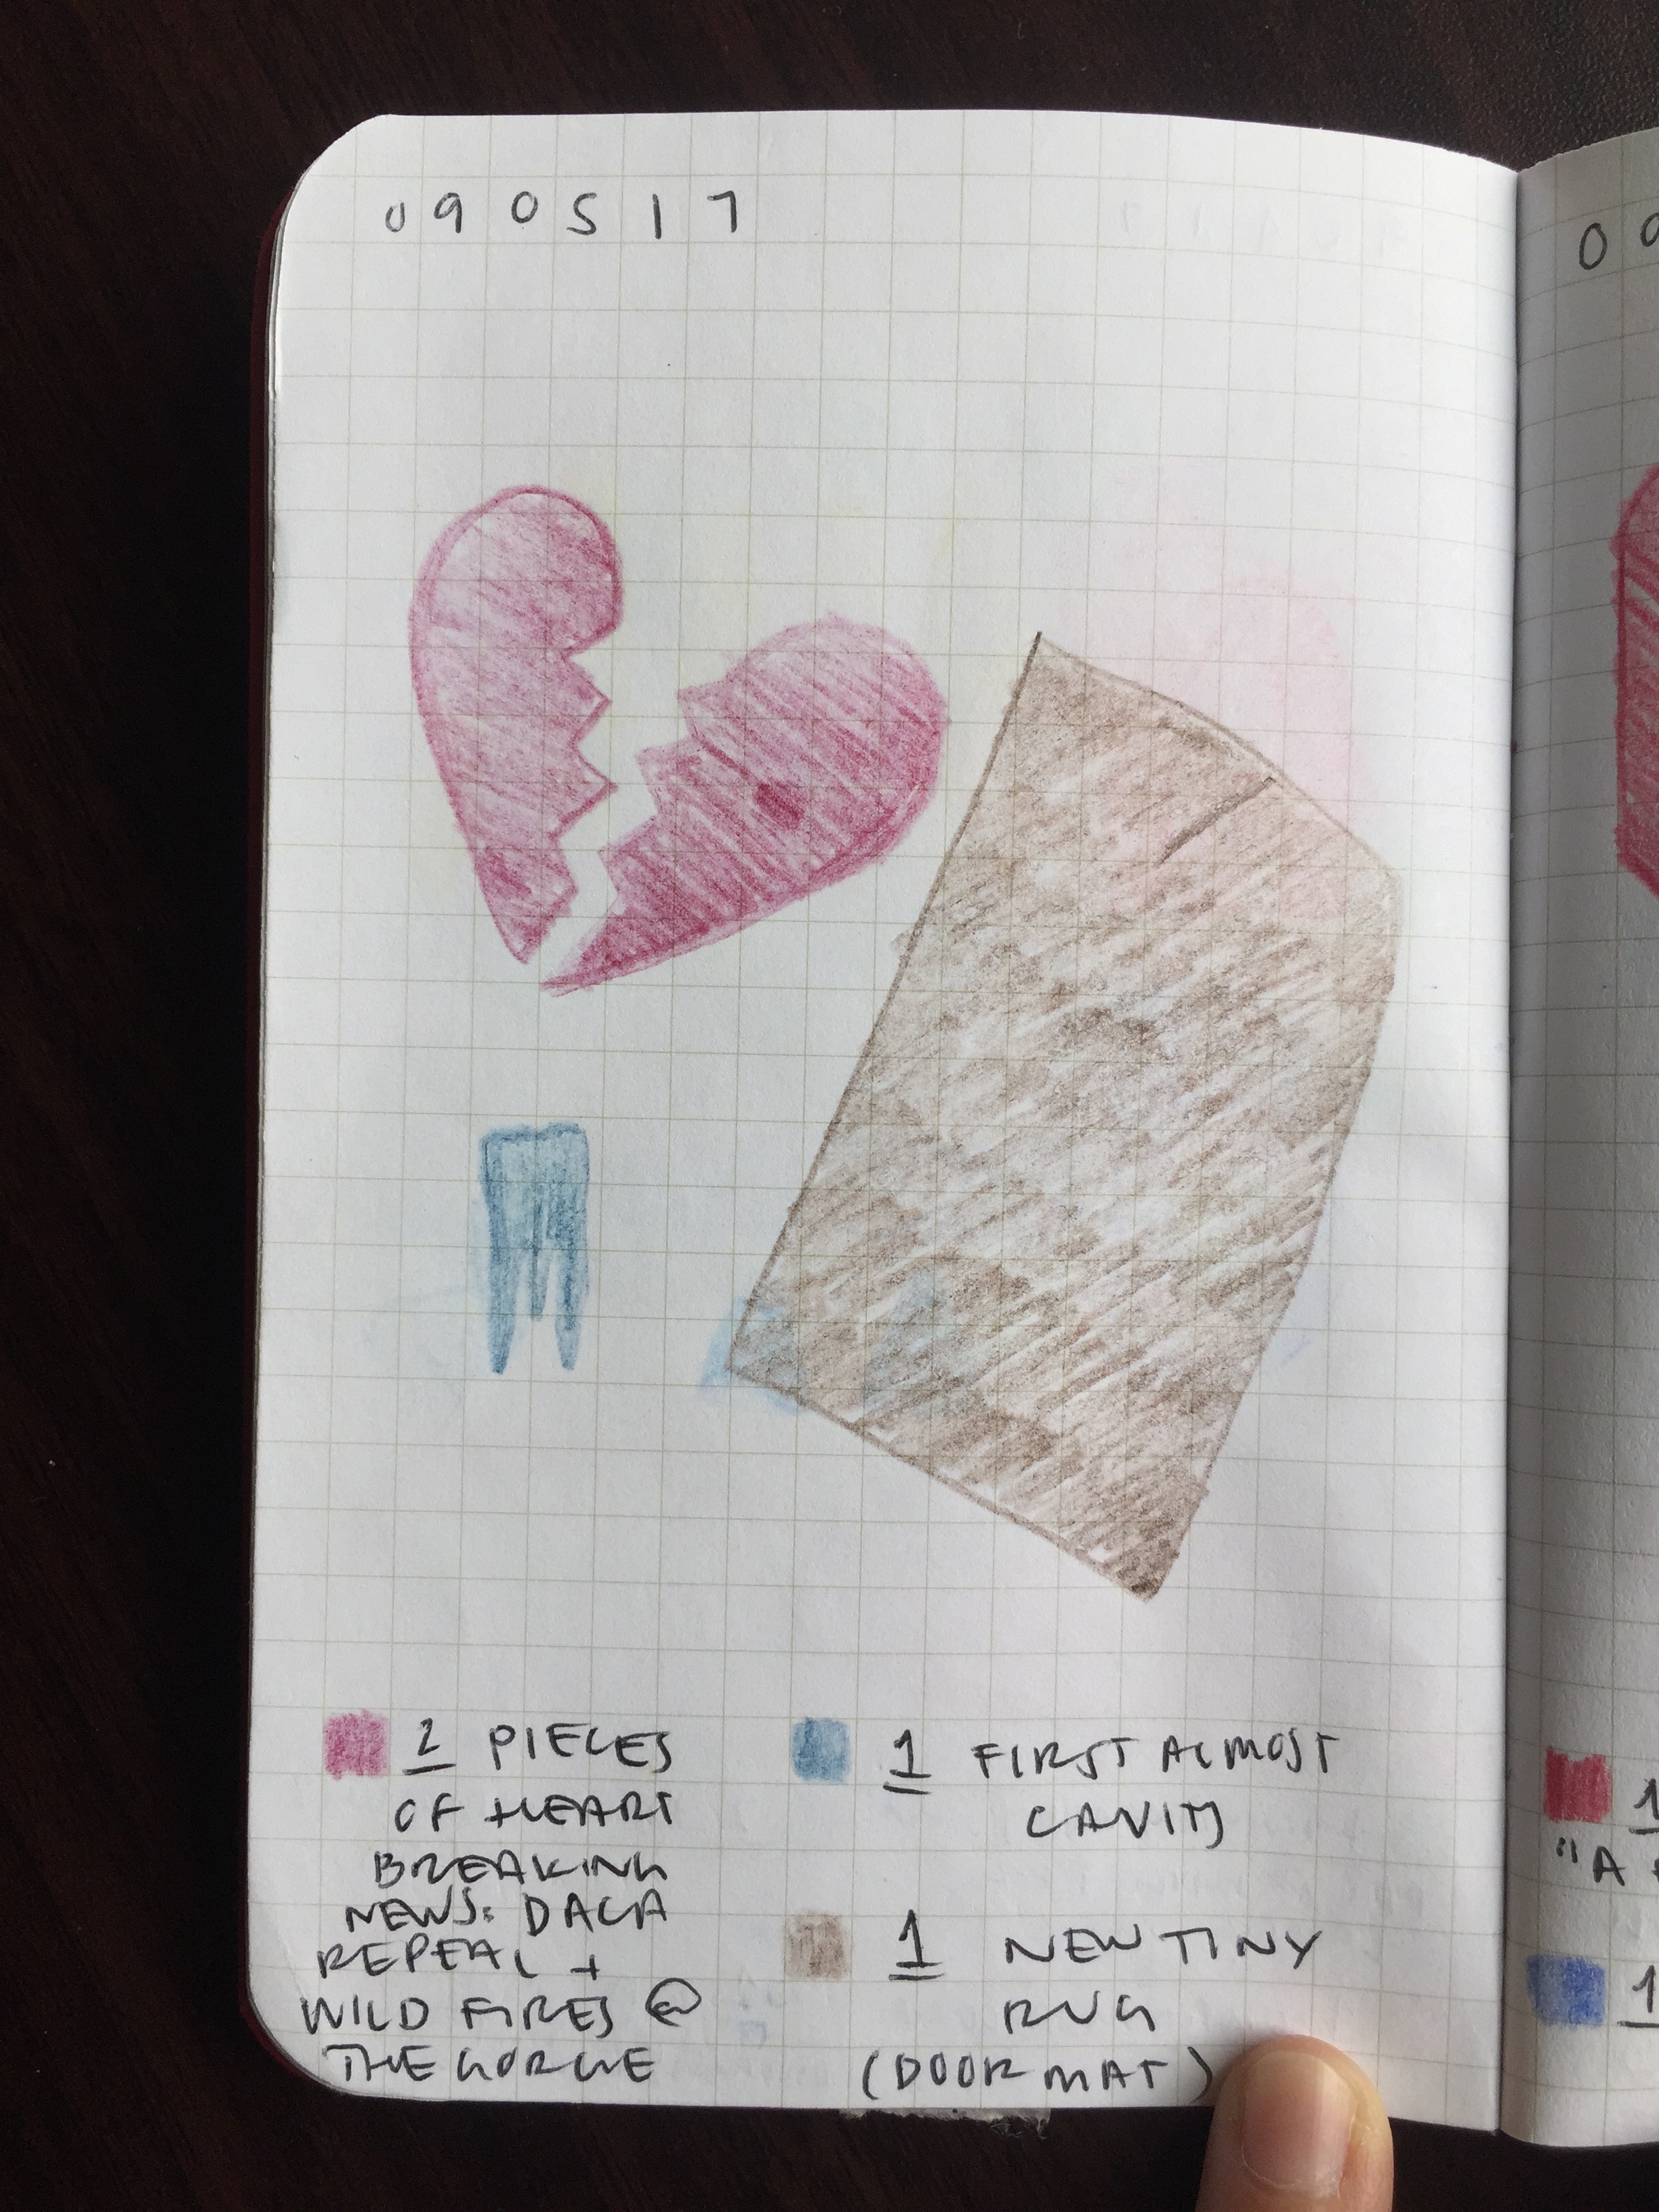 090517
2 PIECES
OF HEART
BREAKING
NEWS: DACA
REPEAL +
WILD FIRES @
THE GORGE
1 FIRST ALMOST
CAVITY
1 NEW TINY
RUG
(DOORMAT)
09
1
"A
1